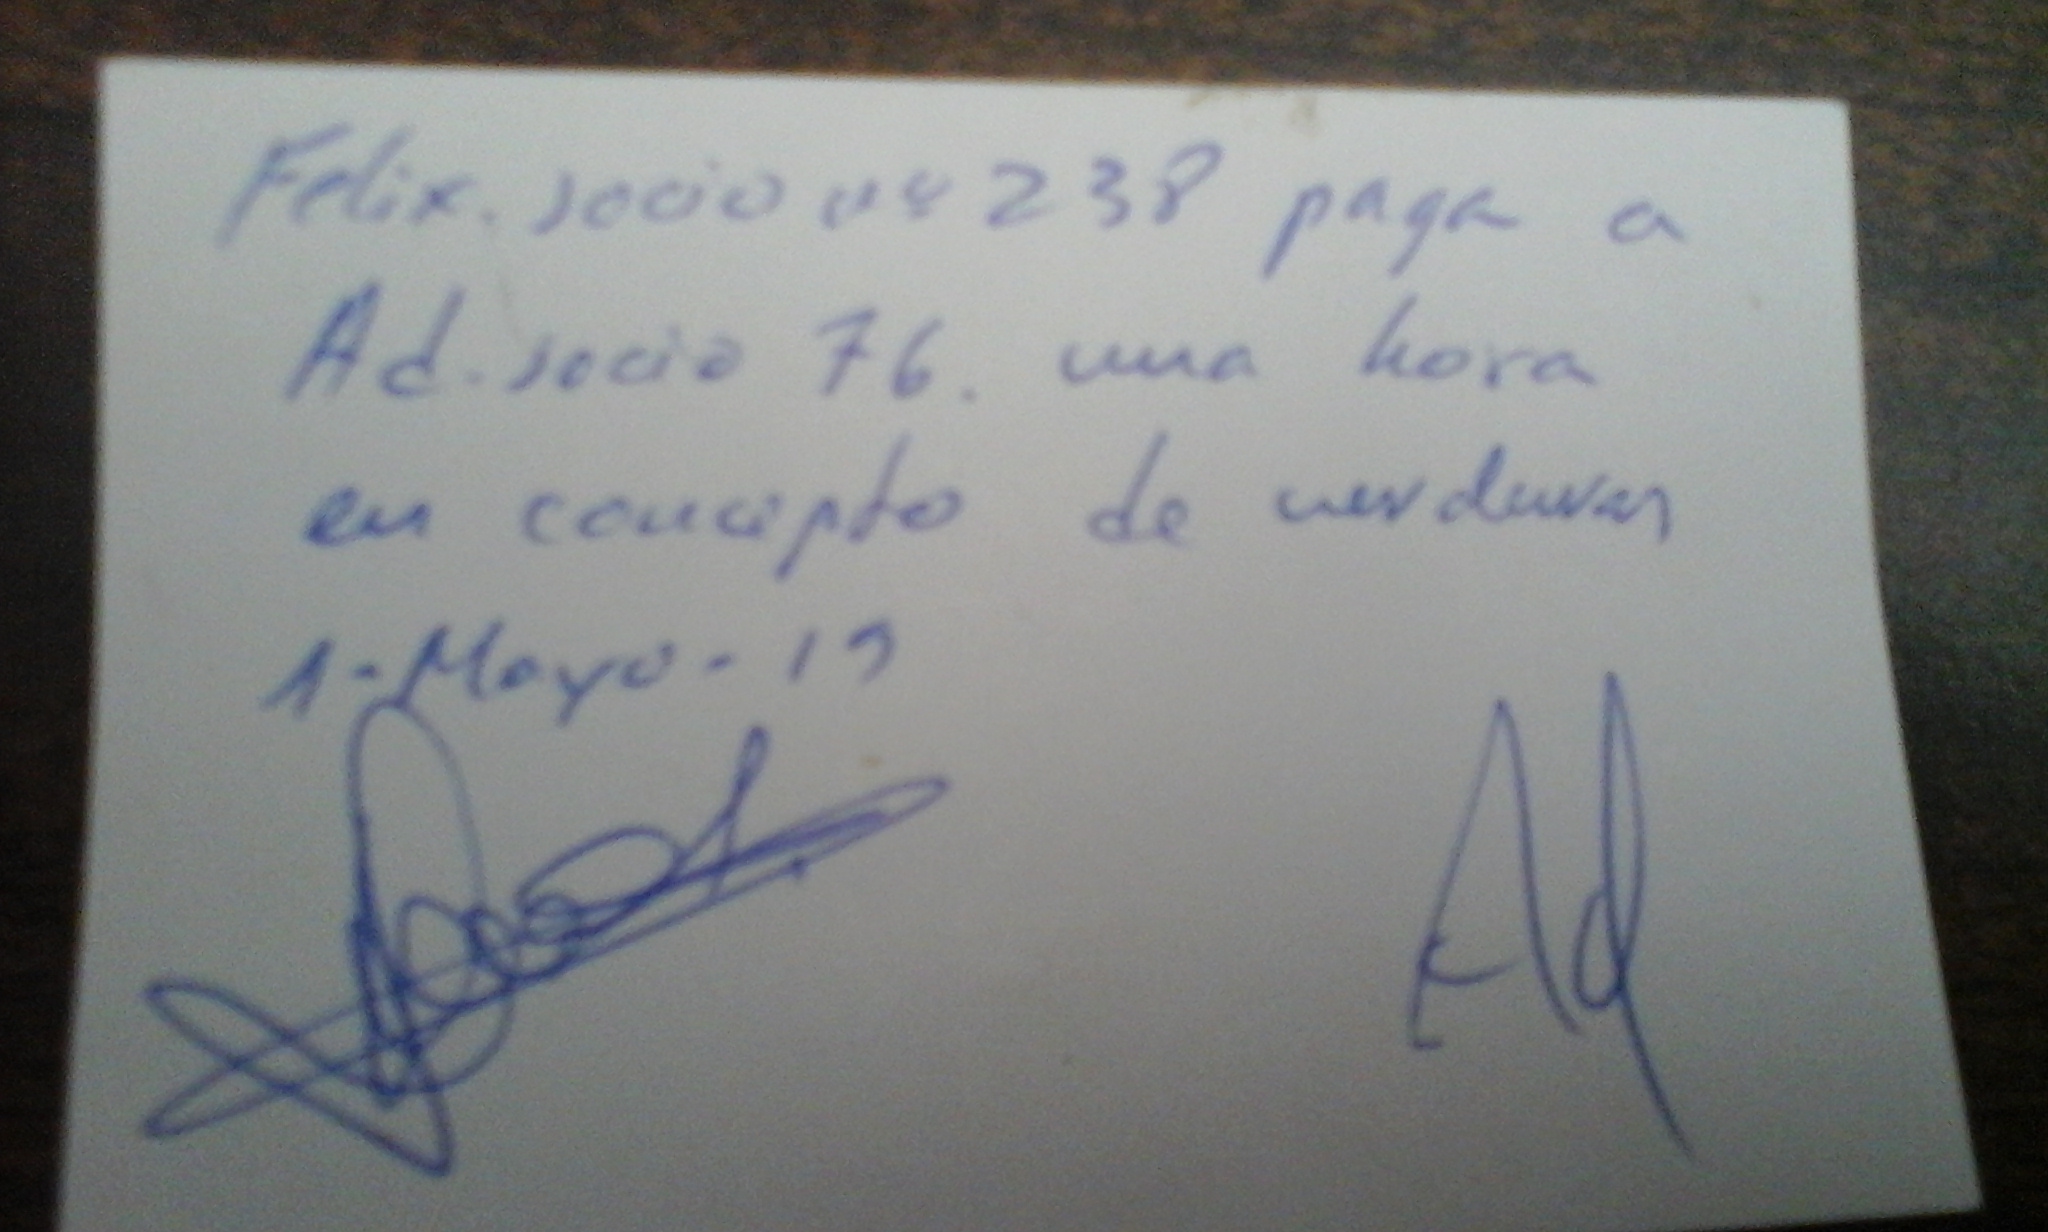 Felix. socio nº 238 paga a
Ad. socio 76. una hora
en concepto de verduras
1-Mayo-19
Ad